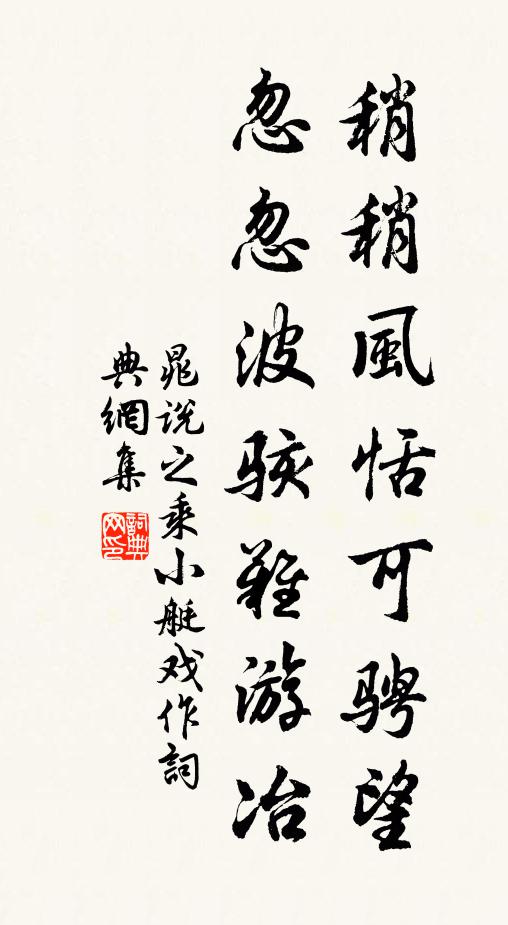 稍稍風恬可騁望
忽忽波駭難游冶
晁説之乘小艇戏作詞
典網集
詞典网印